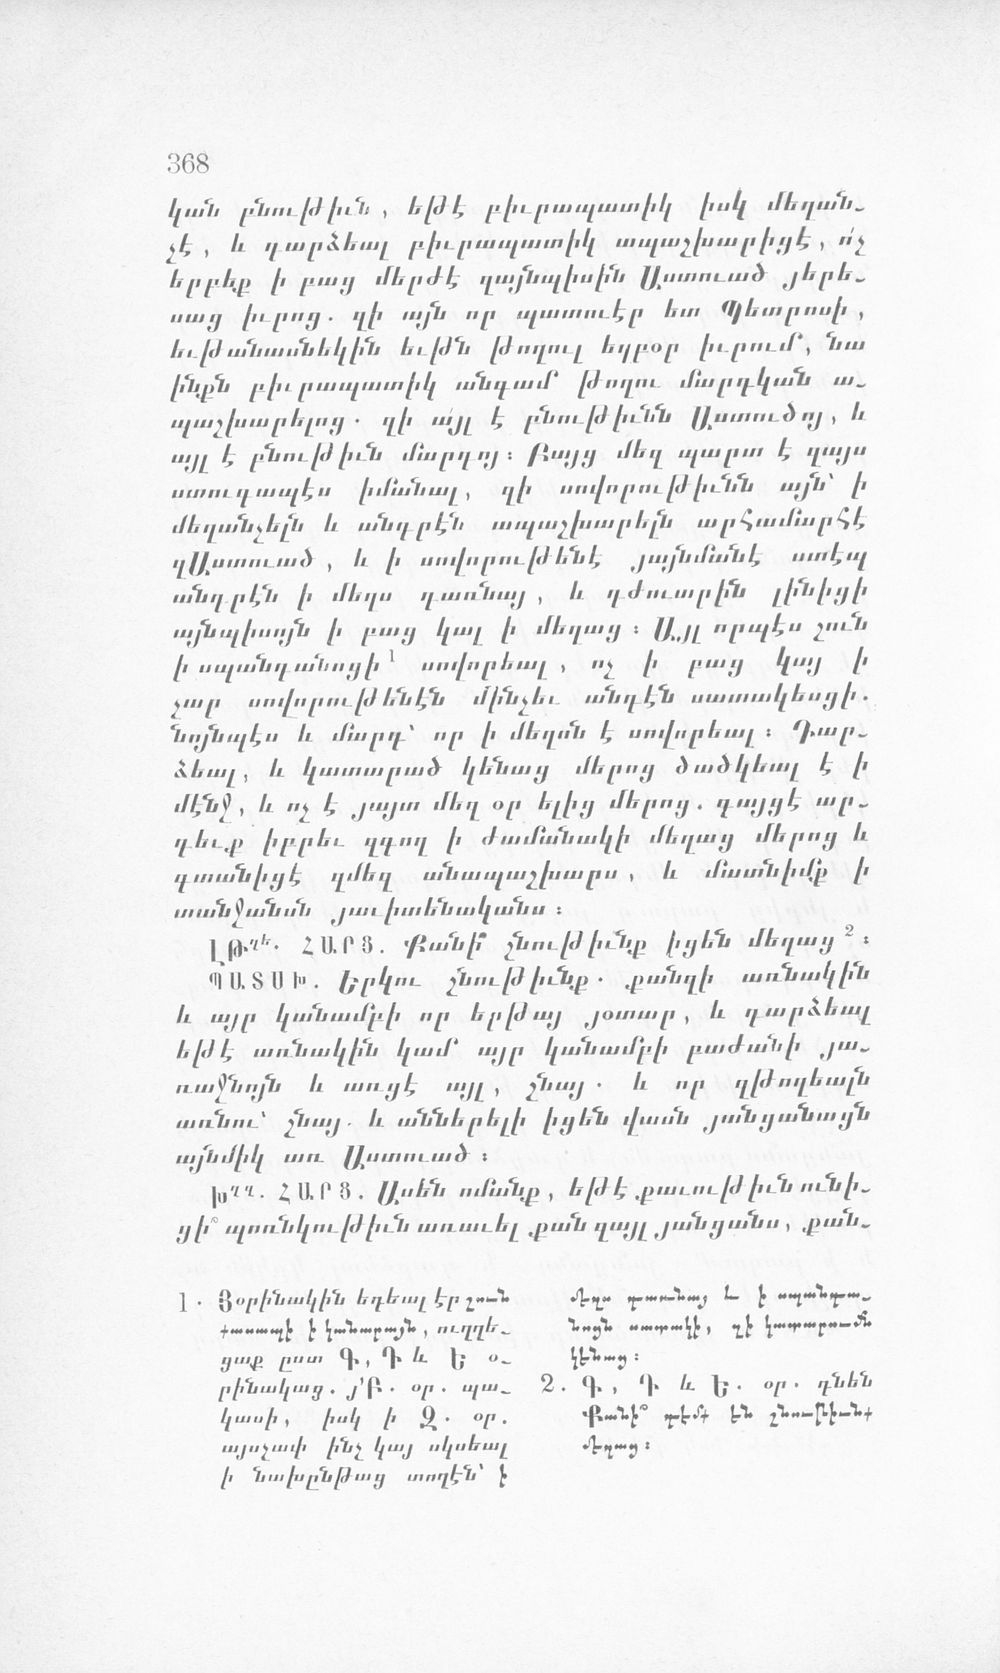 368
կան բնութիւն, եթէ բիւրապատիկ իսկ մեղան-
չէ, և դարձեալ բիւրապատիկ ապաշխարիցէ, ո՛չ
երբեք ի բաց մերժէ զայնպիսին Աստուած յերե-
սաց իւրոց. զի այն որ պատուէր ետ Պետրոսի,
եւթանասնեկին եւթն թողուլ եղբօր իւրում, նա
ինքն բիւրապատիկ անգամ թողու մարդկան ա-
պաշխարելոց. զի ա՛յլ է բնութիւնն Աստուծոյ, և
այլ է բնութիւն մարդոյ։ Բայց մեզ պարտ է զայս
ստուգապէս իմանալ, զի սովորութիւնն այն՝ ի
մեղանչելն և անդրէն ապաշխարելն արհամարհէ
զԱստուած, և ի սովորութենէ յայնմանէ ստէպ
անդրէն ի մեղս դառնայ, և դժուարին լինիցի
այնպիսոյն ի բաց կալ ի մեղաց։ Այլ որպէս շուն
ի սպանդանոցի 1 սովորեալ, ոչ ի բաց կայ ի
չար սովորութենէն մինչեւ անդէն սատակեսցի.
նոյնպէս և մարդ՝ որ ի մեղսն է սովորեալ։ Դար-
ձեալ, և կատարած կենաց մերոց ծածկեալ է ի
մէնջ, և ոչ է յայտ մեզ օր ելից մերոց. գայցէ ար-
դեւք իբրեւ զգող ի ժամանակի մեղաց մերոց և
գտանիցէ զմեզ անապաշխարս, և մատնիմք ի
տանջանսն յաւիտենականս։
ԼԹղե. ՀԱՐՑ. Քանի՞ շնութիւնք իցեն մեղաց 2։
ՊԱՏԱԽ. Երկու շնութիւնք. քանզի առնակին
և այր կանամբի որ երթայ յօտար, և դարձեալ
եթէ առնակին կամ այր կանամբի բաժանի յա-
ռաջնոյն և առցէ այլ, շնայ. և որ զթողեալն
առնու՝ շնայ. և աններելի իցեն վասն յանցանացն
այնմիկ առ Աստուած։
Խղղ. ՀԱՐՑ. Ասեն ոմանք, եթէ քաւութիւն ունի-
ցի՞ պոռնկութիւն առաւել քան զայլ յանցանս, քան-
1. Յօրինակին եդեալ էր շուն
քասապի ի կանարայն, ուղղե-
ցաք ըստ Գ, Դ և Ե օ-
րինակաց. յ՚Բ. օր. պա-
կասի, իսկ ի Զ. օր.
այսչափ ինչ կայ սկսեալ
ի նախընթաց տողէն՝ ի
մեղս դառնայ և ի սպանդա-
նոցն սատակի, զի կատարումն
կենաց։
2. Գ, Դ և Ե. օր. դնեն
Քանի՞ դէմք են շնութիւնք
մեղաց։